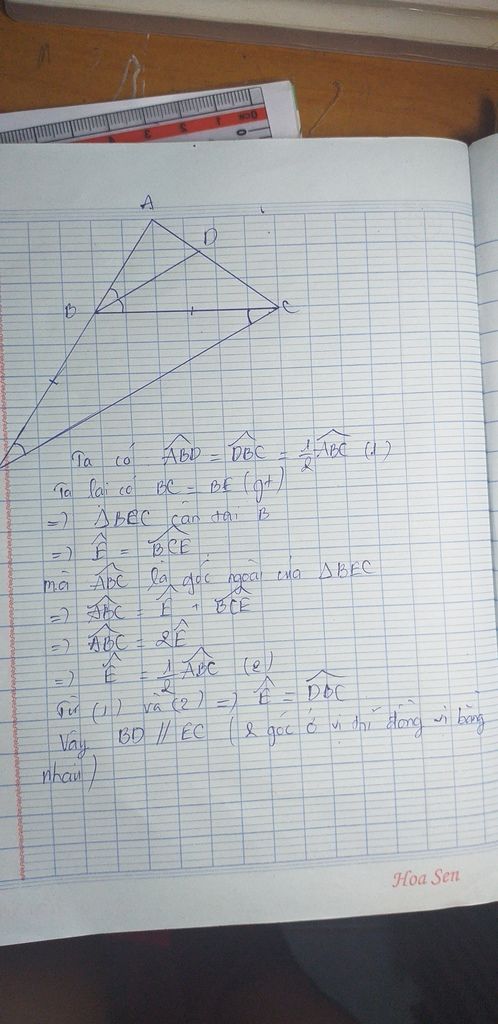 0cm 1 2 3 4 5
0
A
D
B
C
Ta có \widehat{ABD} = \widehat{DBC} = \frac{1}{2} \widehat{ABC} (1)
Ta lại có BC = BE (gt)
=) ΔBEC cân tại B
=) \widehat{E} = \widehat{BCE}
mà \widehat{ABC} là góc ngoài của ΔBEC
=) \widehat{ABC} = \widehat{E} + \widehat{BCE}
=) \widehat{ABC} = 2\widehat{E}
=) \widehat{E} = \frac{1}{2} \widehat{ABC} (2)
Từ (1) và (2) =) \widehat{E} = \widehat{DBC}
Vậy BD // EC ( 2 góc ở vị trí đồng vị bằng
nhau)
Hoa Sen